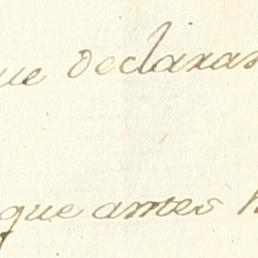 ue declaras
que antes